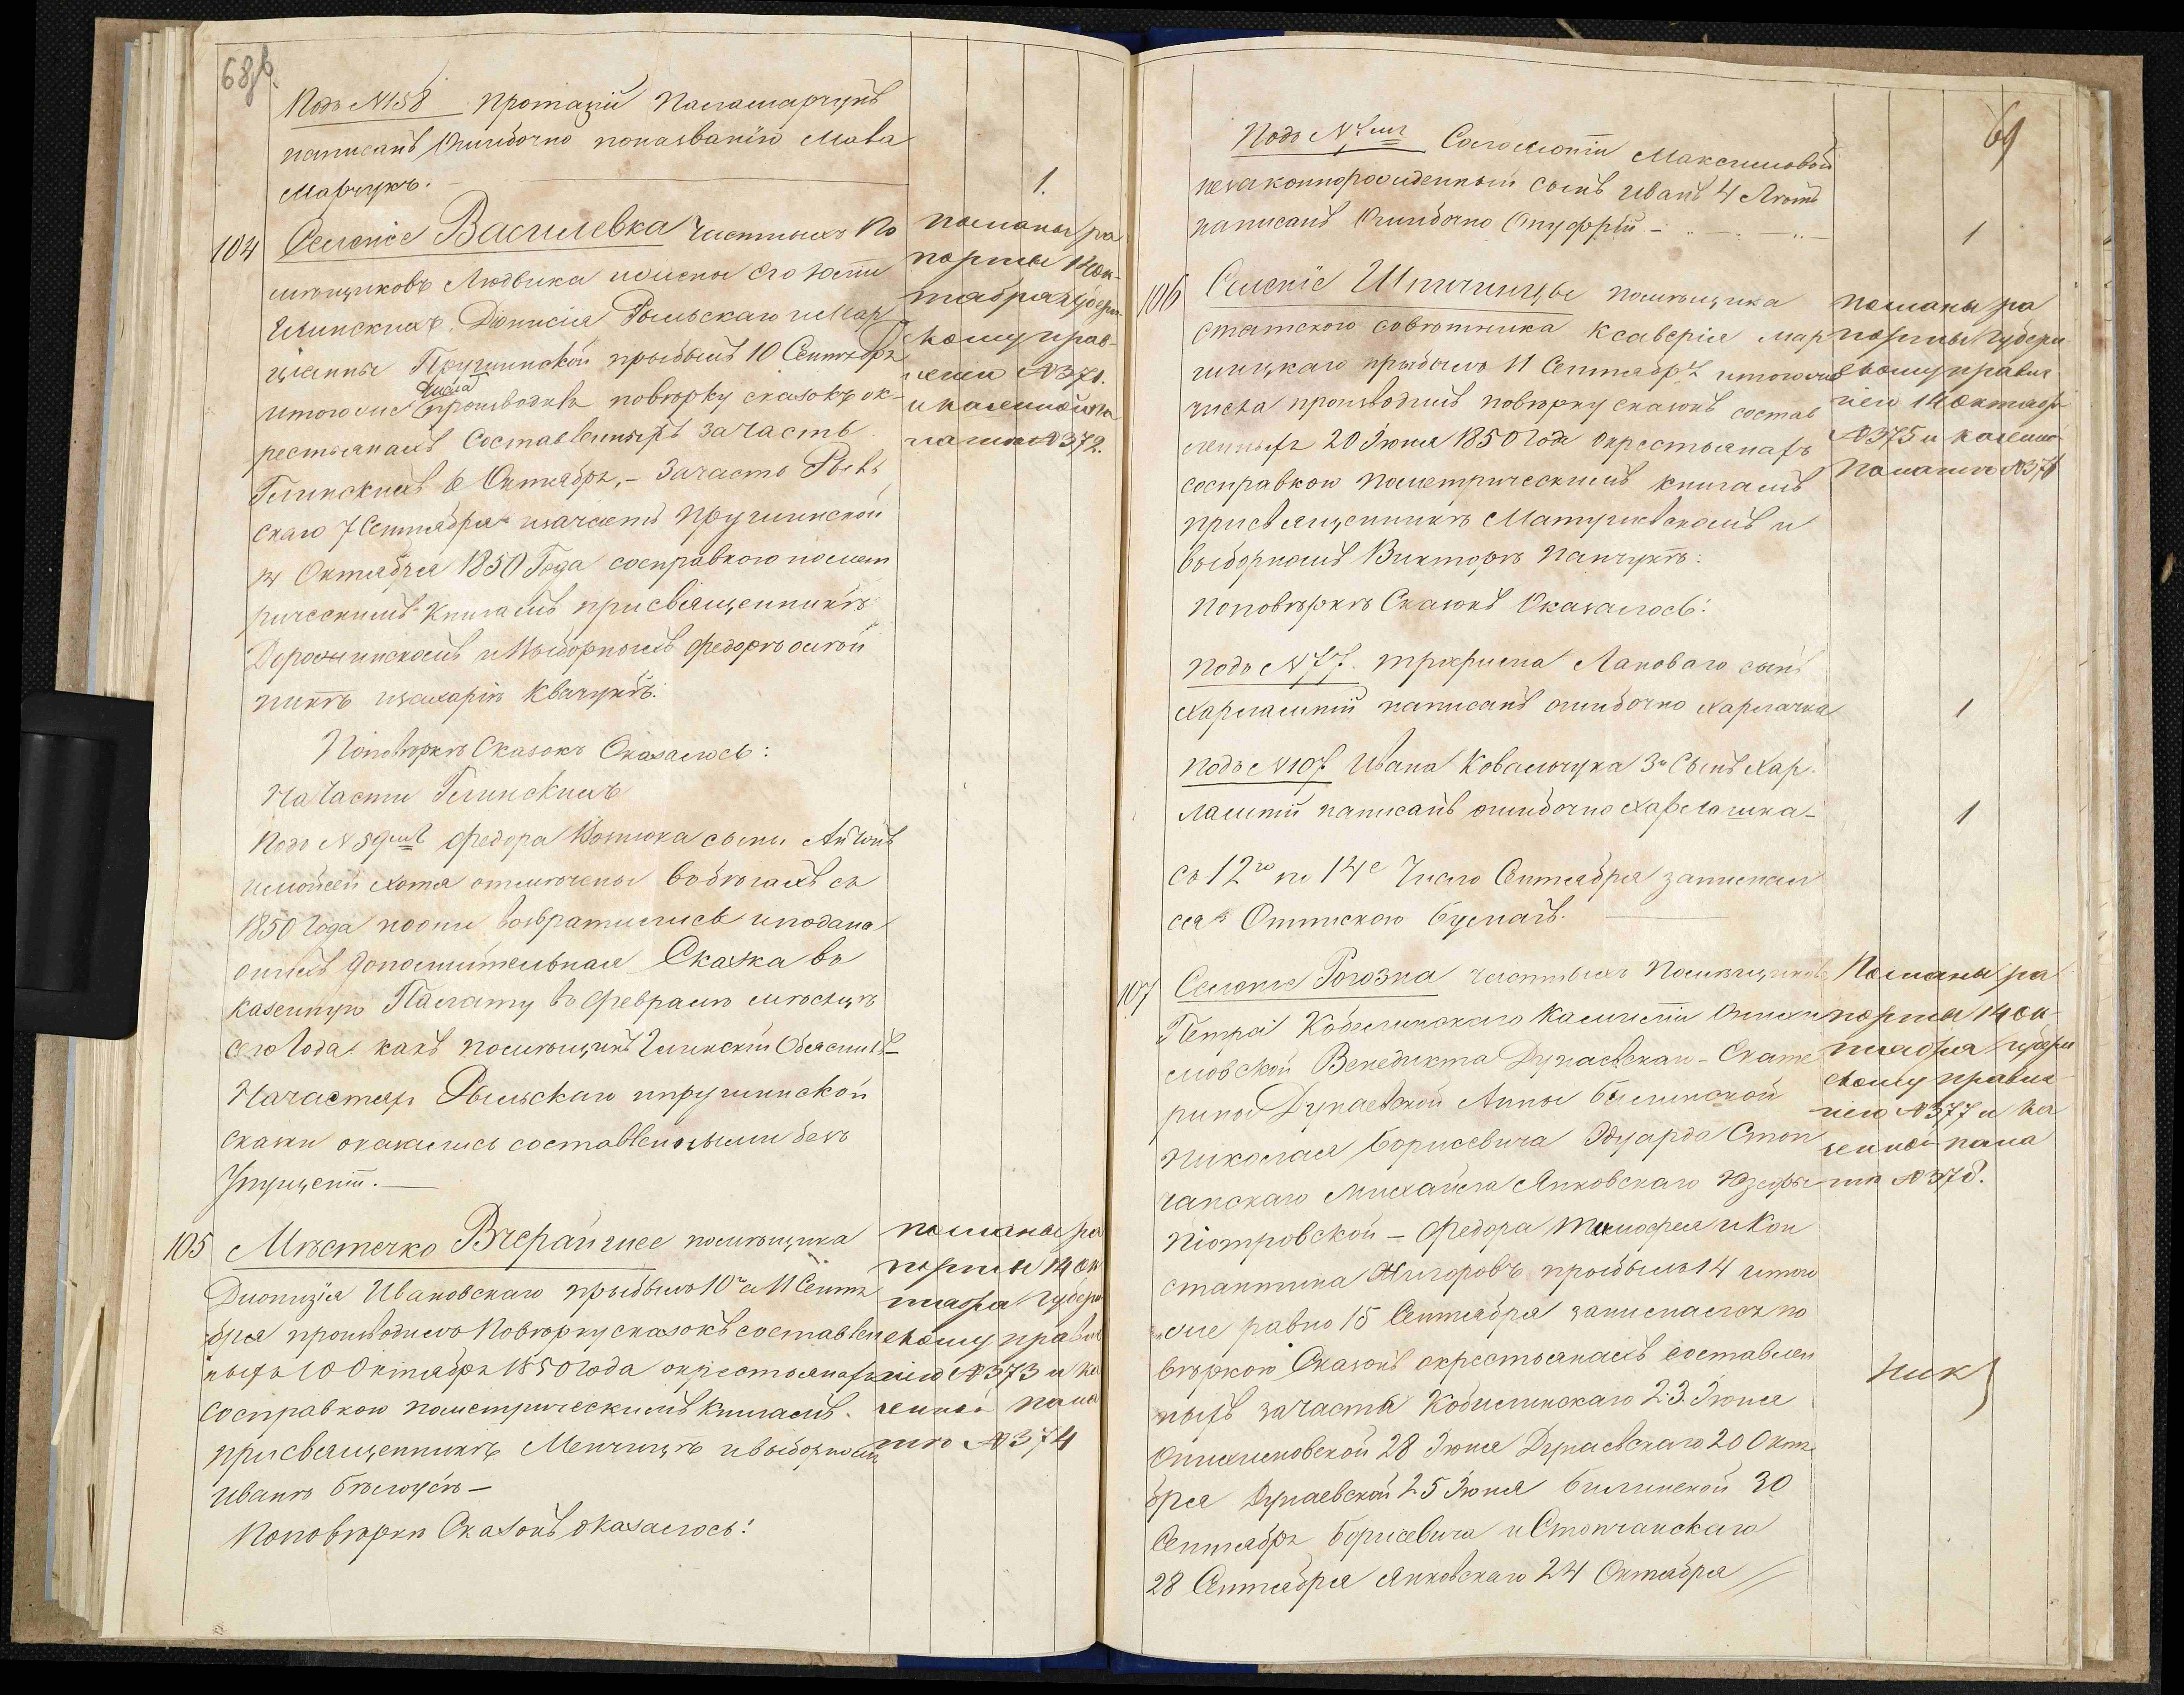 68об.
Подъ №158 Протазій Паламарчукъ
написанъ Ошибочно поназванію Мава
Мавчукъ.
1.
104
Селеніе Василевка частныхъ По
мѣщиковъ Людвика ижены его Юстіи
Глинскихъ, Діонисія Рыльскаго иМар
ціанны Пружинской прыбылъ 10 Сентября
итогоже числа производилъ повѣрку сказокъ ок-
рестьянахъ Составленныхъ зачасть
Глинскихъ 6 Октября, - Зачасть Рыль
скаго 7 Сентября изачасть Пружинской
Октября 1850 Года сосправкою помет
рическимъ Книгамъ присвященникѣ
иВыборномъ Федорѣ
изахаріѣ Квачукѣ.
посланы ра
порты 14 Ок-
тября Губерн
скому прав-
ленію №371.
иказенной па
латѣ №372.
Поповѣркѣ Сказокъ Оказалось:
НаЧасти Глинскихъ
Подъ №59мъ Федора сыны Антонъ
имойсей хотя отмечены вобѣгахъ съ
1850 Года ноони возвратились иподана
онихъ дополнительная Сказка въ
казенную Палату въ февралѣ мѣсяцѣ
сего Года какъ помѣщикъ Глинскій Объяснилъ-
Начастяхъ Рыльскаго ипружинской
сказки оказались составленными безъ
Упущеній.
105
Мѣстечко Вчерайшее помѣщика
Діонизія Ивановскаго прыбылъ 10го а 11 Сентя
бря производилъ Повѣрку сказокъ составлен
ныхъ 10 Октября 1850 Года окрестьянахъ
сосправкою пометрическимъ Книгамъ.
присвященникѣ Менчицѣ ивыборномъ
Иванѣ Бѣлоусѣ -
Поповѣрки Сказокъ оказалось:
посланы ра
порты 14 Ок
тября Губерн
скому правле
нію №373 и ка
зенной пала
тѣ №374
69
Подъ № Саломоніи Максимовой
незаконнорожденный сынъ Иванъ 4 Лѣтъ
написанъ Ошибочно Онуфрій -
1
106
Селеніе Шпичинцы помѣщика
статского совѣтника Ксаверія мар
шицкаго прыбылъ 11 Сентября итогоже
числа производилъ повѣрку сказокъ состав
ленныхъ 20 Іюня 1850 года окрестьянахъ
сосправкою пометрическимъ книгамъ
присвященникѣ Матушевскомъ и
выборномъ Викторѣ Панчукѣ:
поповѣркѣ Сказокъ Оказалось:
посланы ра
порты Губерн
скому правле
нію 14 Октября
№375 и казенной
палатѣ №376
подъ №77. Трифина Лановаго сынъ
харлампій написанъ ошибочно харлачка
1
подъ №107 Ивана Ковальчука 3й Сынъ Хар-
лампій написанъ ошибочно харлашка-
1
Съ 12го по 14е Число Сентября занимал
ся Отпискою бумагъ.
107
Селеніе Рогозна частныхъ помѣщиковъ
Петра Кобылинскаго Камилліи Онихи
мовской Венедикта Дунаевскаго - Екате
рины Дунаевской Анны Билинской
Николая Борисевича Эдуарда Стоп
чанскаго михайла Янковскаго Юзефы
Піотровской - Федора Тимофея иКон
стантина Жигоровъ прыбылъ 14 итого
же равно 15 Сентября занимался по
вѣркою Сказокъ окрестьянахъ составлен
ныхъ зачасть Кобылинскаго 23 Іюня
Онихимовской 28 Іюня Дунаевскаго 20 Октя
бря Дунаевской 25 Іюня Билинской 30
Сентября Борисевича иСтопчанскаго
28 Сентября Янковскаго 24 Октября
посланы ра
порты 14 Ок-
тября Губерн
скому правле
нію №377 и ка
зенной пала
тѣ №378.